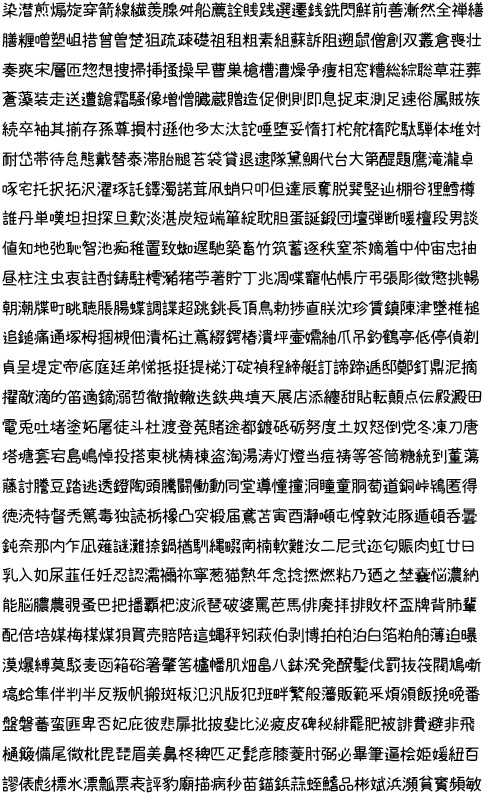 染潜煎煽旋穿箭線繊羨腺舛船薦詮賎践選遷銭銑閃鮮前善漸然全禅繕
膳糎噌塑岨措曾曽楚狙疏疎礎祖租粗素組蘇訴阻遡鼠僧創双叢倉喪壮
奏爽宋層匝惣想捜掃挿掻操早曹巣槍槽漕燥争痩相窓糟総綜聡草荘葬
蒼藻装走送遭鎗霜騒像増憎臓蔵贈造促側則即息捉束測足速俗属賊族
続卒袖其揃存孫尊損村遜他多太汰詑唾堕妥惰打柁舵楕陀駄騨体堆対
耐岱帯待怠態戴替泰滞胎腿苔袋貸退逮隊黛鯛代台大第醍題鷹滝瀧卓
啄宅托択拓沢濯琢託鐸濁諾茸凧蛸只叩但達辰奪脱巽竪辿棚谷狸鱈樽
誰丹単嘆坦担探旦歎淡湛炭短端箪綻耽胆蛋誕鍛団壇弾断暖檀段男談
値知地弛恥智池痴稚置致蜘遅馳築畜竹筑蓄逐秩窒茶嫡着中仲宙忠抽
昼柱注虫衷註酎鋳駐樗瀦猪苧著貯丁兆凋喋寵帖帳庁弔張彫徴懲挑暢
朝潮牒町眺聴脹腸蝶調諜超跳銚長頂鳥勅捗直朕沈珍賃鎮陳津墜椎槌
追鎚痛通塚栂掴槻佃漬柘辻蔦綴鍔椿潰坪壷嬬紬爪吊釣鶴亭低停偵剃
貞呈堤定帝底庭廷弟悌抵挺提梯汀碇禎程締艇訂諦蹄逓邸鄭釘鼎泥摘
擢敵滴的笛適鏑溺哲徹撤轍迭鉄典填天展店添纏甜貼転顛点伝殿澱田
電兎吐堵塗妬屠徒斗杜渡登菟賭途都鍍砥砺努度土奴怒倒党冬凍刀唐
塔塘套宕島嶋悼投搭東桃梼棟盗淘湯涛灯燈当痘祷等答筒糖統到董蕩
藤討謄豆踏逃透鐙陶頭騰闘働動同堂導憧撞洞瞳童胴萄道銅峠鴇匿得
徳涜特督禿篤毒独読栃橡凸突椴届鳶苫寅酉瀞噸屯惇敦沌豚遁頓呑曇
鈍奈那内乍凪薙謎灘捺鍋楢馴縄畷南楠軟難汝二尼弐迩匂賑肉虹廿日
乳入如尿韮任妊忍認濡禰祢寧葱猫熱年念捻撚燃粘乃廼之埜嚢悩濃納
能脳膿農覗蚤巴把播覇杷波派琶破婆罵芭馬俳廃拝排敗杯盃牌背肺輩
配倍培媒梅楳煤狽買売賠陪這蝿秤矧萩伯剥博拍柏泊白箔粕舶薄迫曝
漠爆縛莫駁麦函箱硲箸肇筈櫨幡肌畑畠八鉢溌発醗髪伐罰抜筏閥鳩噺
塙蛤隼伴判半反叛帆搬斑板氾汎版犯班畔繁般藩販範釆煩頒飯挽晩番
盤磐蕃蛮匪卑否妃庇彼悲扉批披斐比泌疲皮碑秘緋罷肥被誹費避非飛
樋簸備尾微枇毘琵眉美鼻柊稗匹疋髭彦膝菱肘弼必畢筆逼桧姫媛紐百
謬俵彪標氷漂瓢票表評豹廟描病秒苗錨鋲蒜蛭鰭品彬斌浜瀕貧賓頻敏